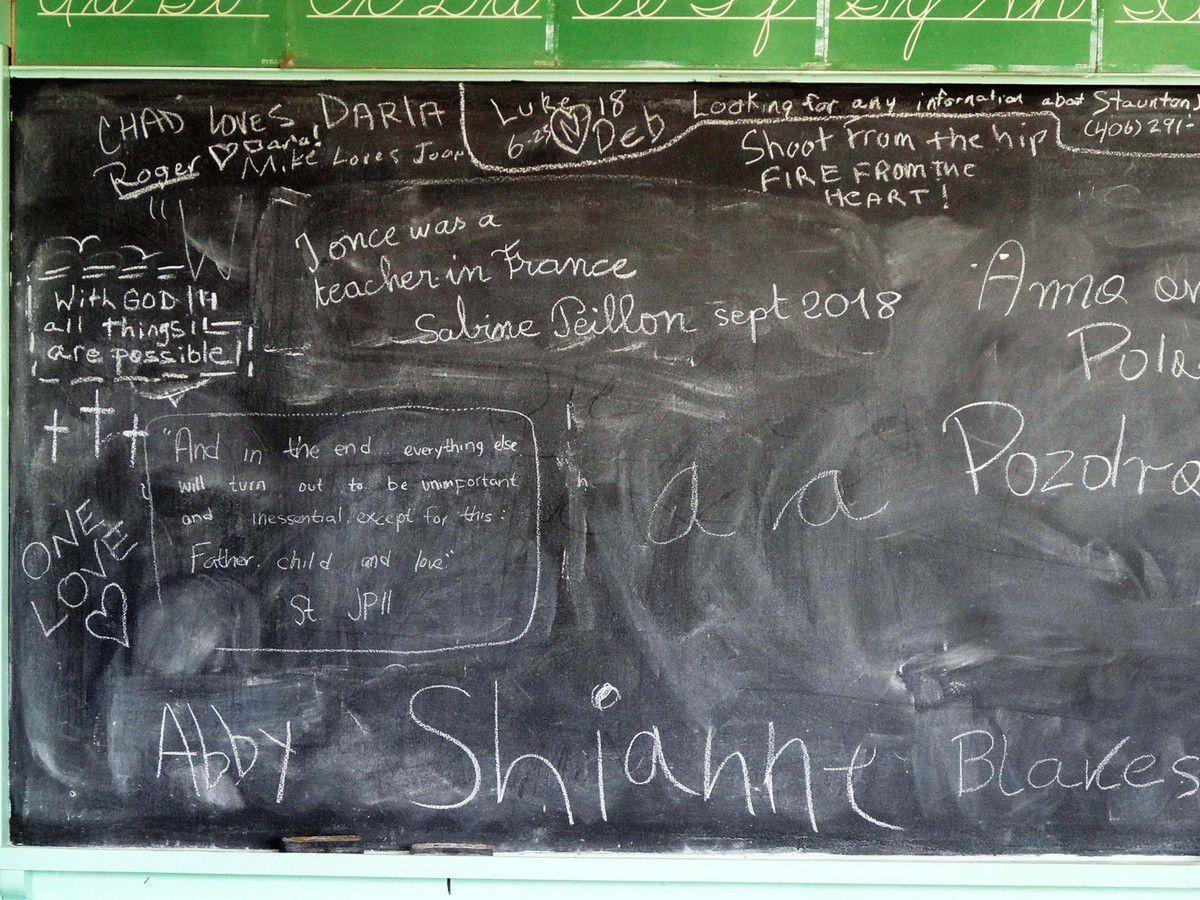 Aa Bb Cc Dd Ee Ff Gg Hh
CHAD LOVES DARLA
Roger ♡ Darla!
Mike Loves Joan
Luke 18
6-25 N Deb
Looking for any information about Staunton
(406) 291-
Shoot from the hip
FIRE FROM THE
HEART!
I once was a
teacher in France
Sabine Peillon sept 2018
With GOD
all things
are possible
"And in the end... everything else
will turn out to be unimportant
and inessential, except for this:
Father, child and love"
St. JPII
ONE
LOVE
♡
a a
Pola
Pozdro
Abby Shianne Blakes